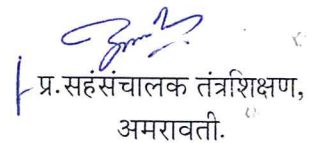 प्र.सहंसंचालक तंत्रशिक्षण,
अमरावती.